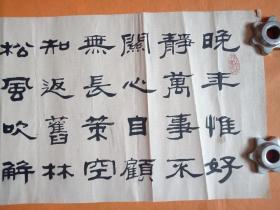 晚年惟好
靜萬事不
關心自顧
無長策空
知返舊林
松風吹解